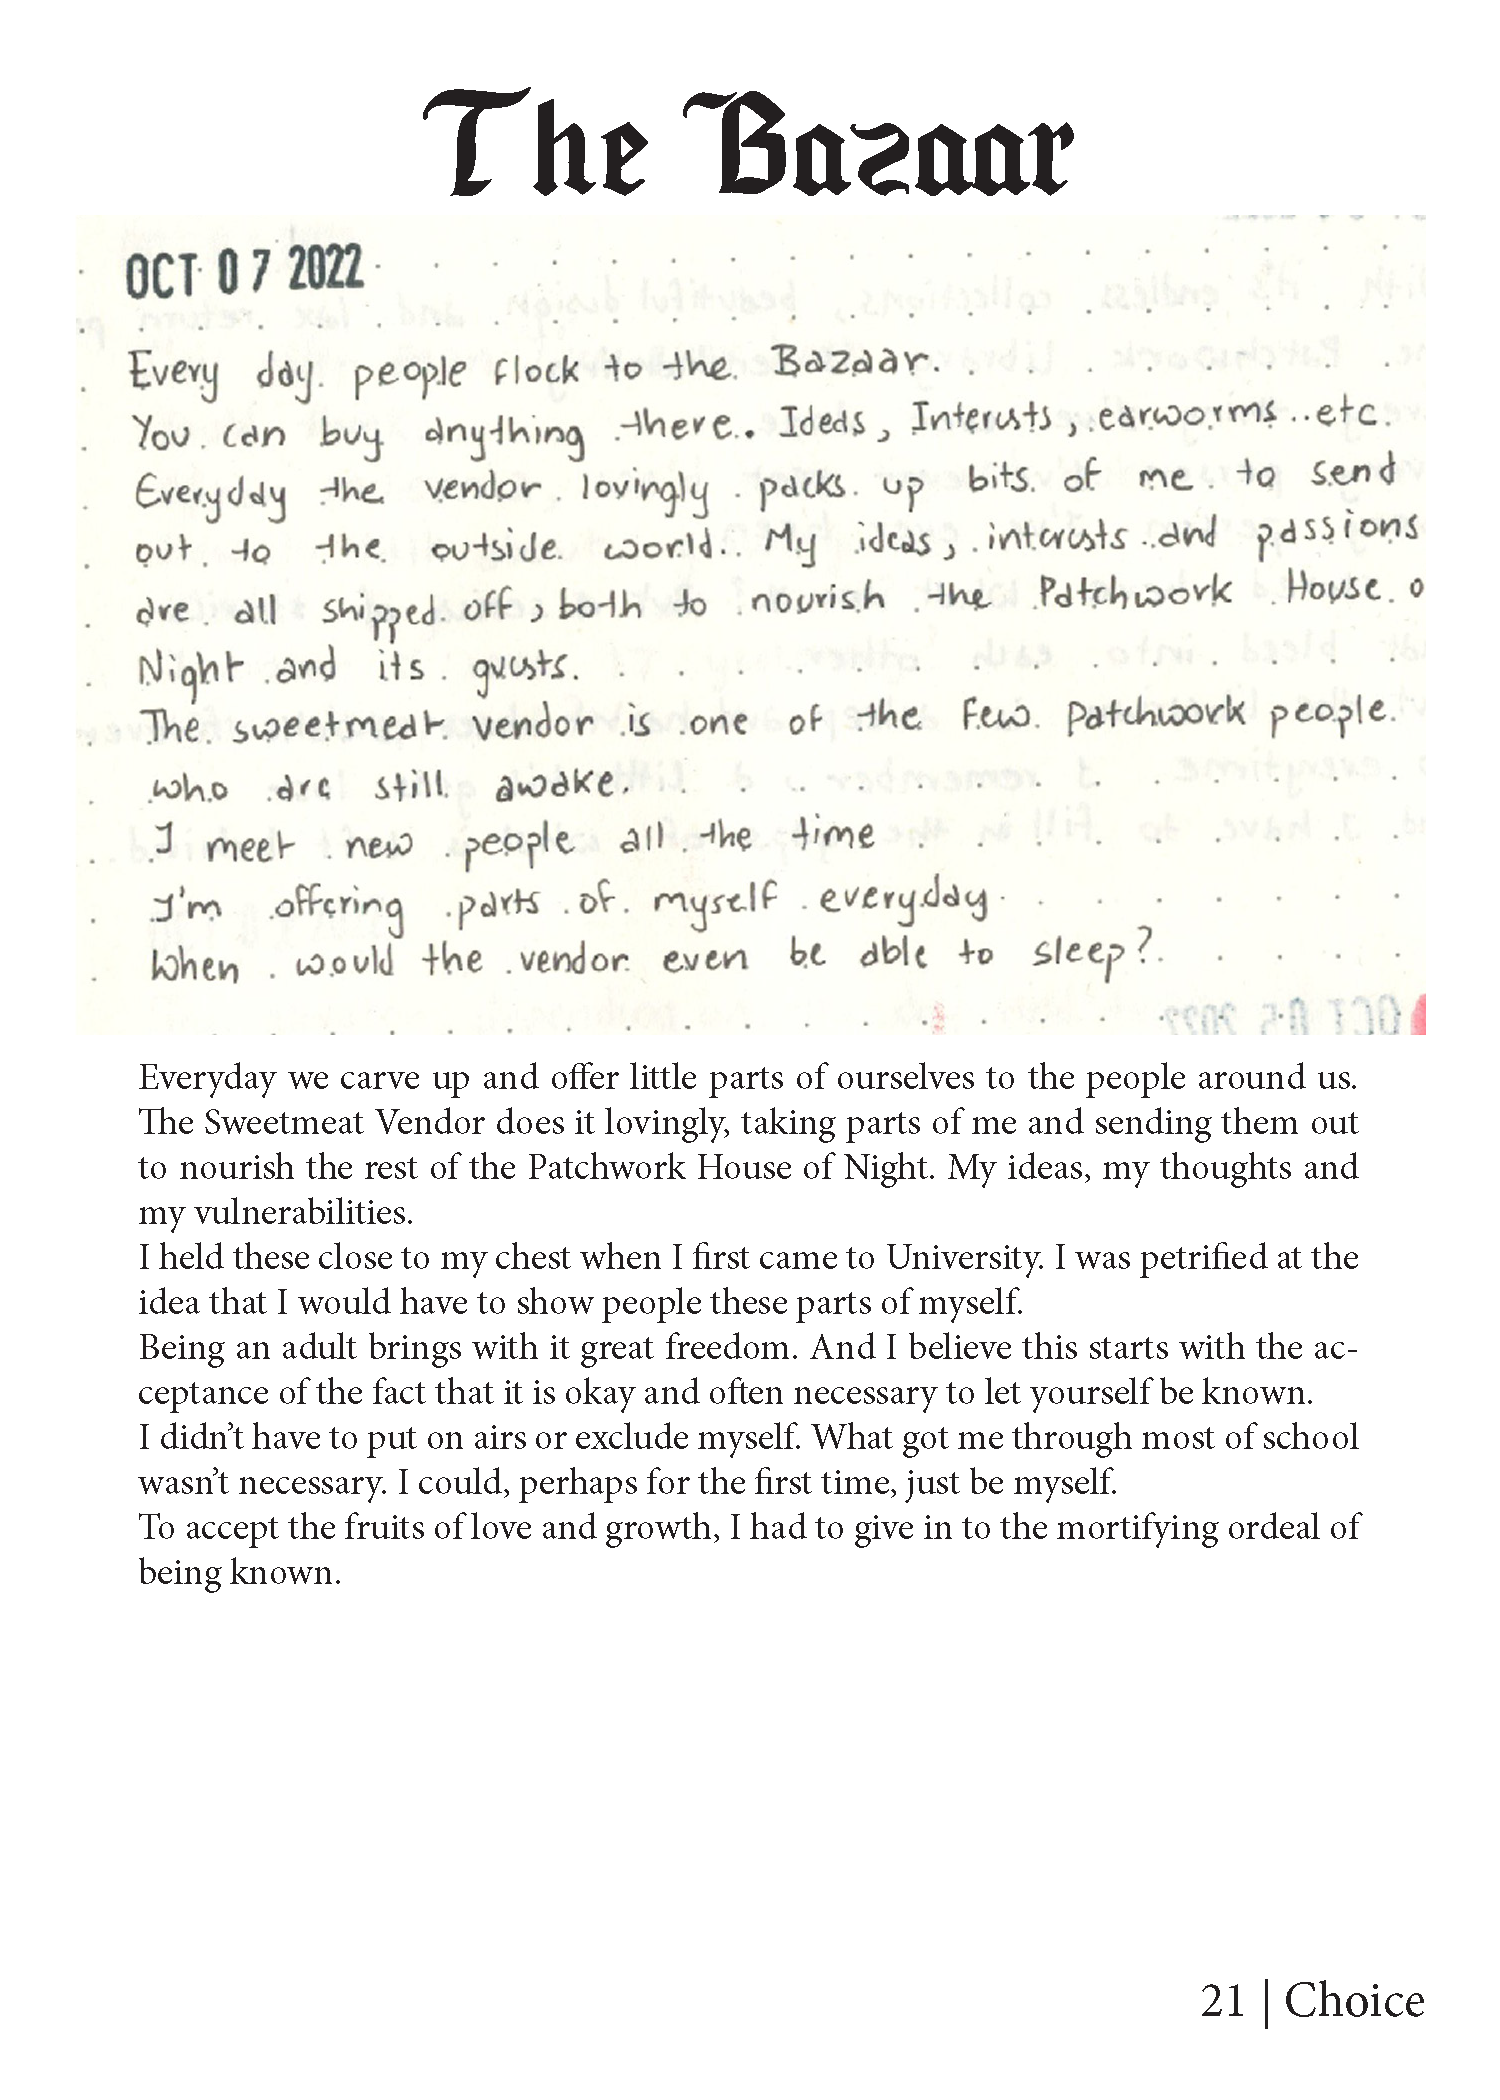 The Bazaar
OCT 07 2022
Every day people flock to the Bazaar.
You can buy anything there. Ideas, Interests, earworms..etc.
Everyday the vendor lovingly packs up bits of me to send
out to the outside world. My ideas, interests and passions
are all shipped off, both to nourish the Patchwork House o
Night and its guests.
The sweetmeat vendor is one of the few patchwork people
who are still awake.
I meet new people all the time
I'm offering parts of myself everyday
When would the vendor even be able to sleep?
OCT 05 2022
Everyday we carve up and offer little parts of ourselves to the people around us.
The Sweetmeat Vendor does it lovingly, taking parts of me and sending them out
to nourish the rest of the Patchwork House of Night. My ideas, my thoughts and
my vulnerabilities.
I held these close to my chest when I first came to University. I was petrified at the
idea that I would have to show people these parts of myself.
Being an adult brings with it great freedom. And I believe this starts with the ac-
ceptance of the fact that it is okay and often necessary to let yourself be known.
I didn't have to put on airs or exclude myself. What got me through most of school
wasn't necessary. I could, perhaps for the first time, just be myself.
To accept the fruits of love and growth, I had to give in to the mortifying ordeal of
being known.
21 | Choice